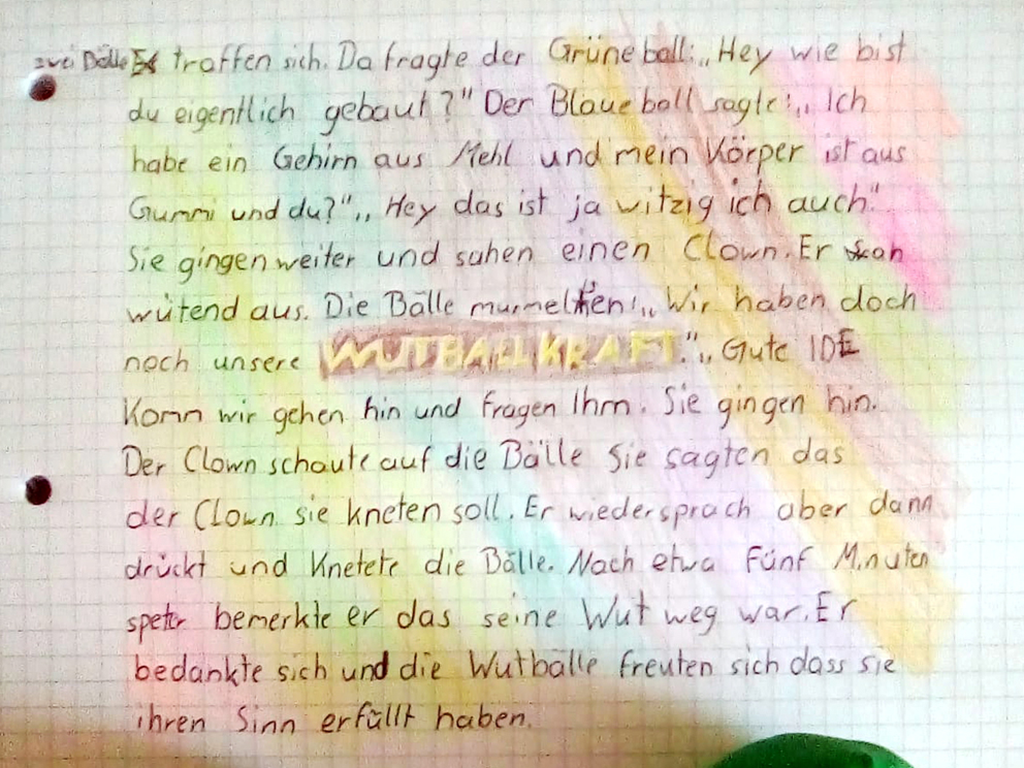 zwei Bälle traffen sich. Da fragte der Grüne ball: „Hey wie bist
du eigentlich gebaut?" Der Blaue ball sagte: „Ich
habe ein Gehirn aus Mehl und mein Körper ist aus
Gummi und du?" „Hey das ist ja witzig ich auch."
Sie gingen weiter und sahen einen Clown. Er sah
wütend aus. Die Bälle murmelten: „Wir haben doch
noch unsere WUTBALLKRAFT." „Gute IDE
Komm wir gehen hin und fragen Ihm. Sie gingen hin.
Der Clown schaute auf die Bälle Sie sagten das
der Clown sie kneten soll. Er wiedersprach aber dann
drückt und Knetete die Bälle. Nach etwa Fünf Minuten
speter bemerkte er das seine Wut weg war. Er
bedankte sich und die Wutbälle freuten sich dass sie
ihren Sinn erfüllt haben.